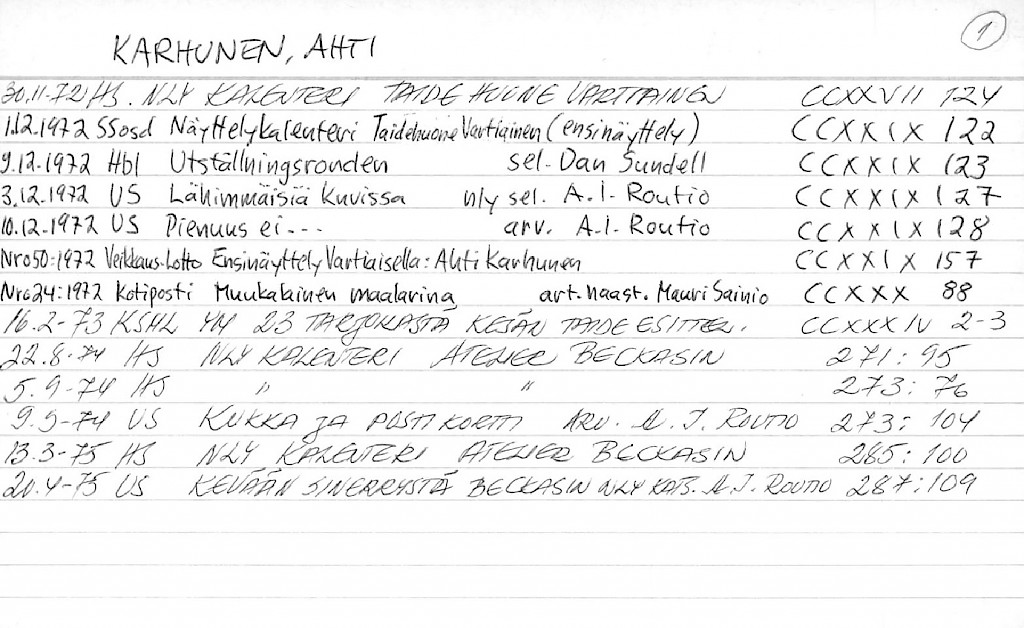 1
KARHUNEN, AHTI
30.11-72 HS. NLY KALENTERI TAIDE HUONE VARTIAINEN CCXXVII 124
1.12.1972 SSosd Näyttelykalenteri Taidehuone Vartiainen (ensinäyttely) CCXXIX 122
9.12.1972 Hbl Utställningsronden sel. Dan Sundell CCXXIX 123
3.12.1972 US Lähimmäisiä kuvissa nly sel. A.I. Routio CCXXIX 127
10.12.1972 US Pienuus ei --- arv. A.I. Routio CCXXIX 128
Nro50:1972 Veikkaus-Lotto Ensinäyttely Vartiaisella: Ahti Karhunen CCXXIX 157
Nro24:1972 Kotiposti Muukalainen maalarina art. haast. Mauri Sainio CCXXX 88
16.2-73 KSML YM 23 TARJOKASTA KESÄN TAIDE ESITTEL. CCXXXIV 2-3
22.8.74 HS NLY KALENTERI ATELIER BECKASIN 271:95
5.9-74 HS " " 273:76
9.9-74 US KUKKA JA POSTIKORTTI ARV. A.I. ROUTIO 273:104
13.3-75 HS NLY KALENTERI ATELIER BECKASIN 285:100
20.4-75 US KEVÄÄN SINERRYSTÄ BECKASIN NLY KATS. A.I. ROUTIO 287:109